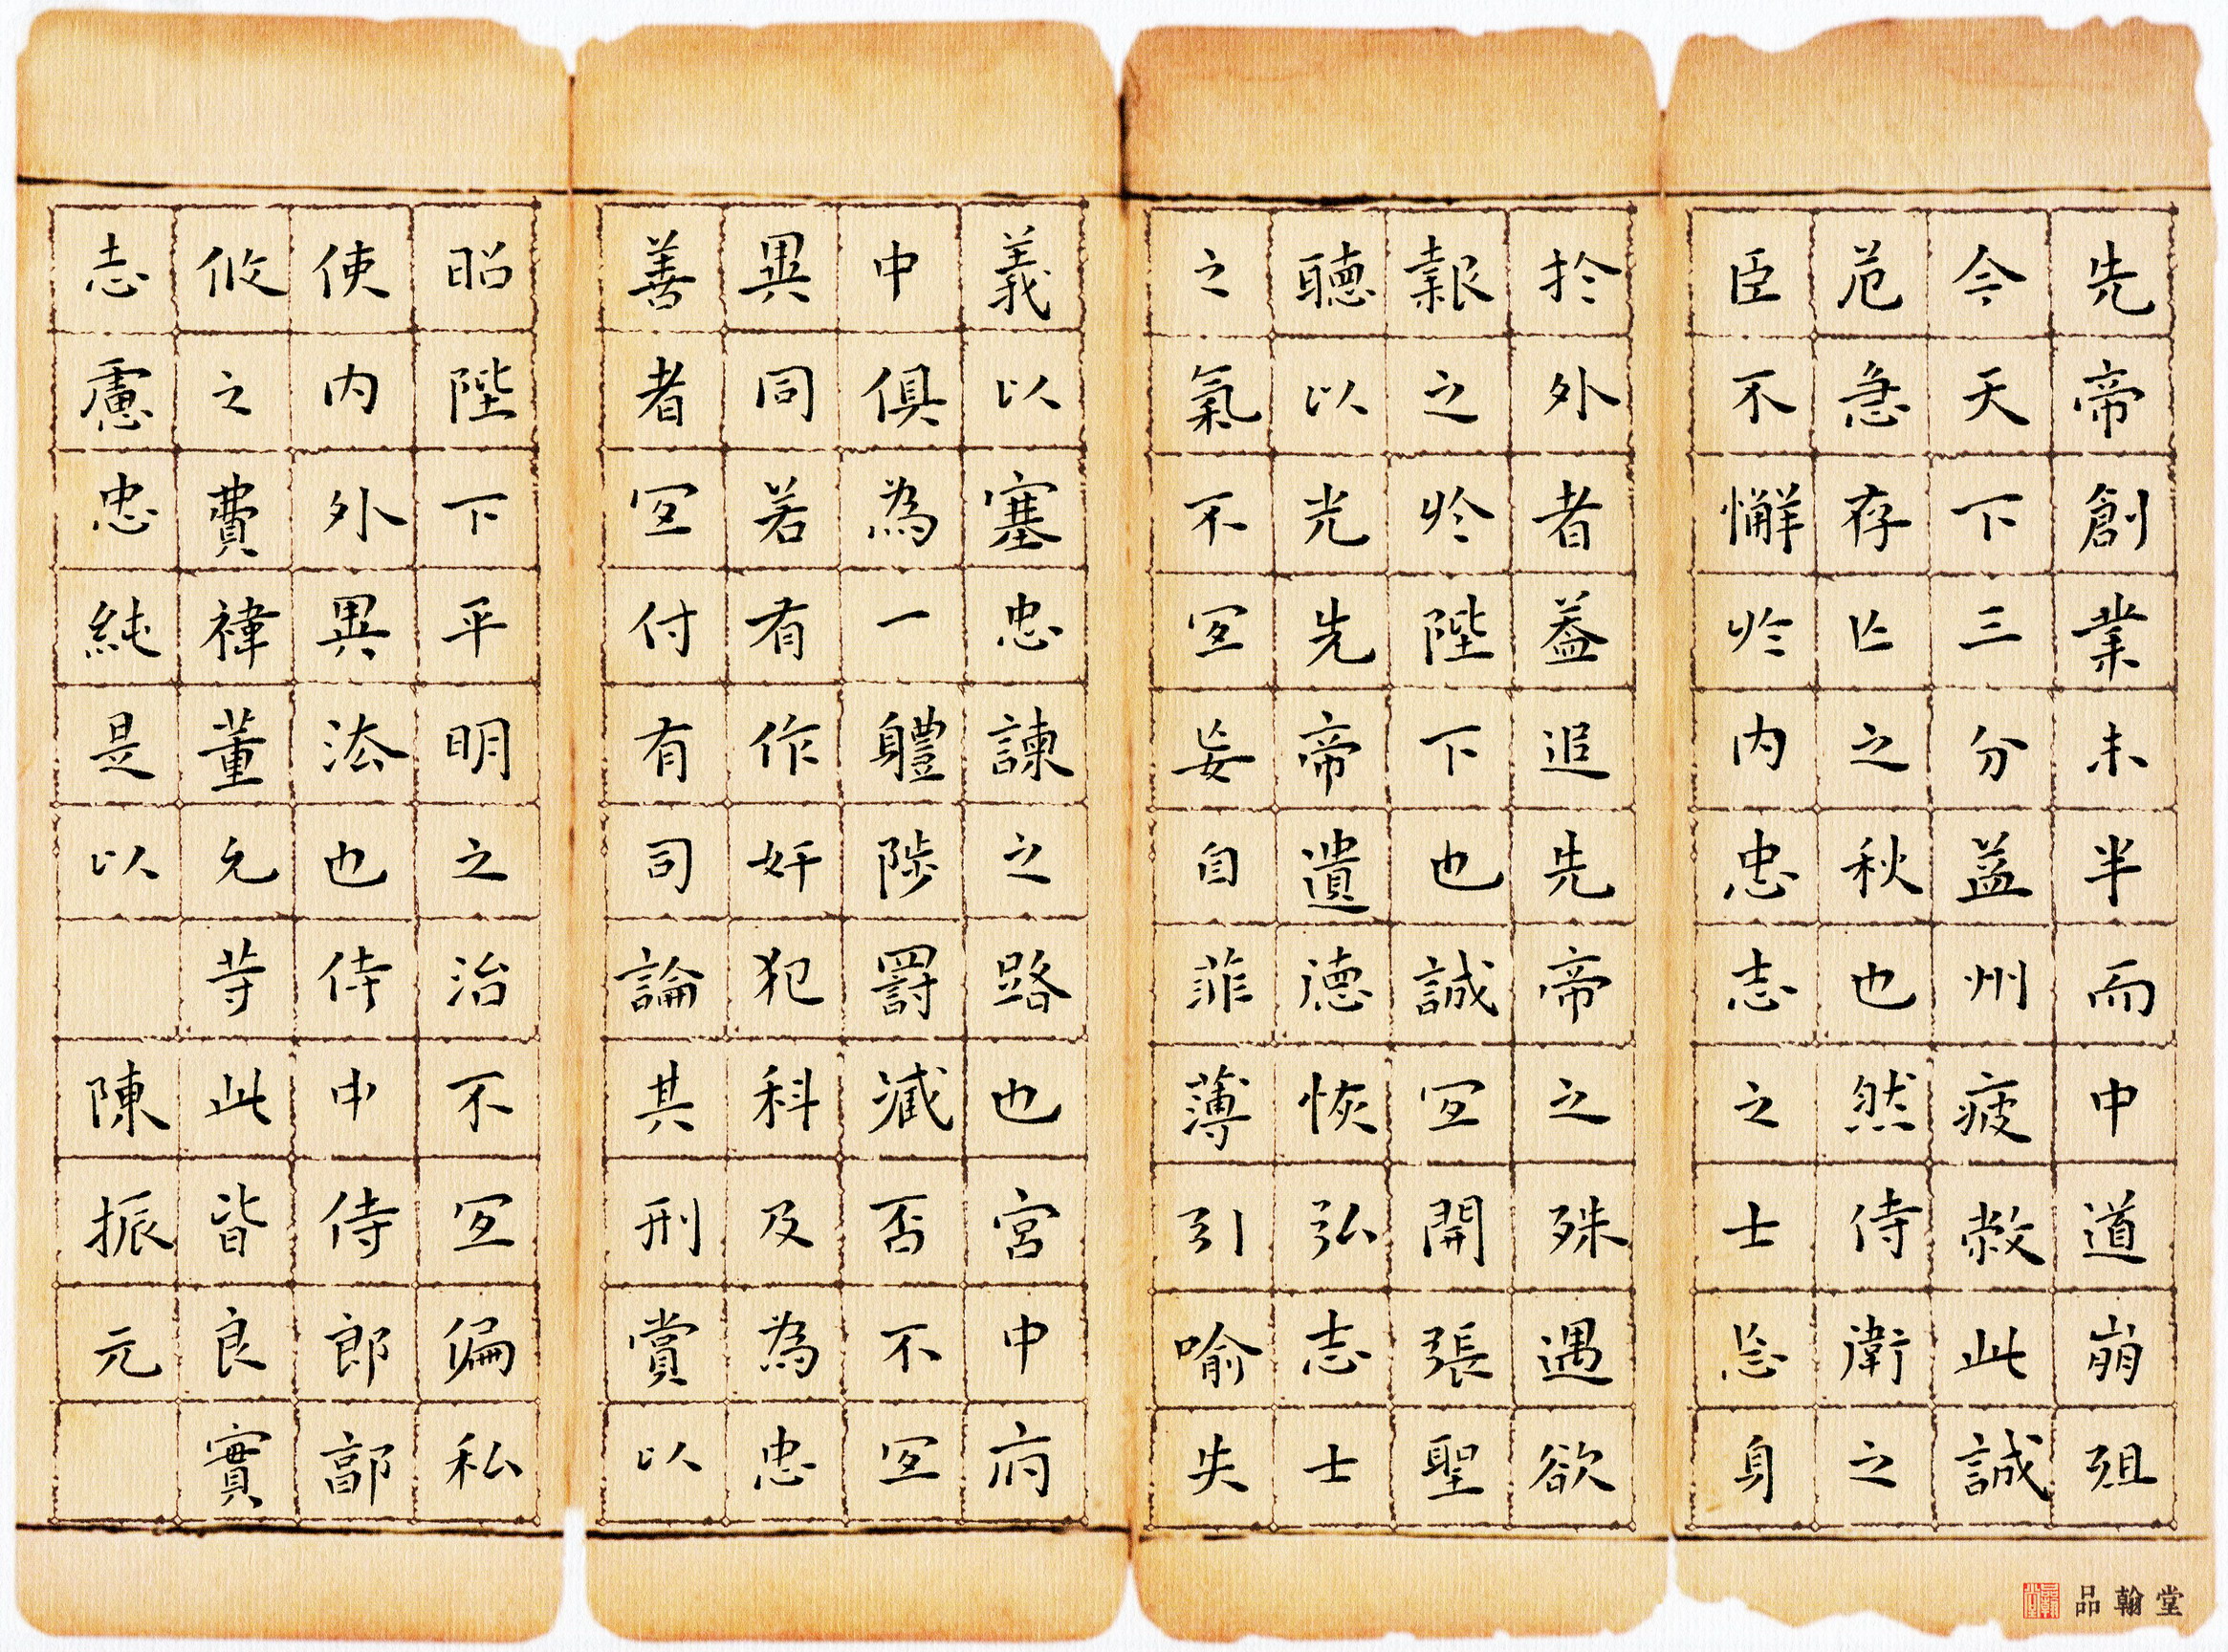 先帝創業未半而中道崩殂
今天下三分益州疲敝此誠
危急存亡之秋也然侍衛之
臣不懈於內忠志之士忘身
於外者葢追先帝之殊遇欲
報之於陛下也誠宜開張聖
聽以光先帝遺德恢弘志士
之氣不宜妄自菲薄引喻失
義以塞忠諫之路也宮中府
中俱為一體陟罰臧否不宜
異同若有作奸犯科及為忠
善者宜付有司論其刑賞以
昭陛下平明之治不宜偏私
使內外異法也侍中侍郎郭
攸之費禕董允等此皆良實
志慮忠純是以 陳振元
品翰堂